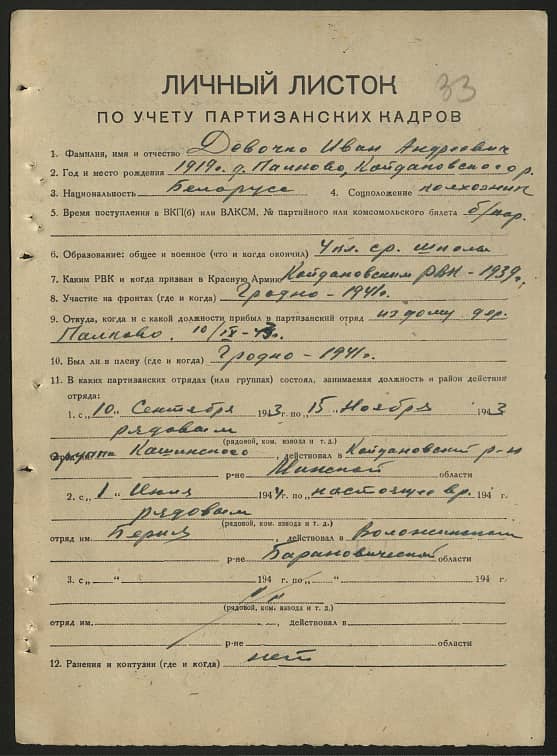 33
ЛИЧНЫЙ ЛИСТОК
ПО УЧЕТУ ПАРТИЗАНСКИХ КАДРОВ
1. Фамилия, имя и отчество Девочко Иван Андреевич
2. Год и место рождения 1919 г. д. Палково, Койдановского р.
3. Национальность Беларусс 4. Соцположение колхозник
5. Время поступления в ВКП(б) или ВЛКСМ, № партийного или комсомольского билета б/пар.
6. Образование: общее и военное (что и когда окончил) 4 кл. ср. школы
7. Каким РВК и когда призван в Красную Армию Койдановским РВК - 1939 г.
8. Участие на фронтах (где и когда) Гродно - 1941 г.
9. Откуда, когда и с какой должности прибыл в партизанский отряд из дому дер.
Палково. 10/IX-43 г.
10. Был ли в плену (где и когда) Гродно - 1941 г.
11. В каких партизанских отрядах (или группах) состоял, занимаемая должность и район действия
отряда:
1. с „10„ Сентября 1943 г. по „15„ Ноября 1943
рядовым
(рядовой, ком. взвода и т. д.)
группа Кашинского, действовал в Койдановский р-н
р-не Минской области
2. с „1„ Июля 1944 г. по „настоящее вр. 194 г
рядовым
(рядовой, ком. взвода и т. д.)
отряд им. Берия, действовал в Воложинском
р-не Барановической области
3. с „ „ 194 г. по „ „ 194 г.
(рядовой, ком. взвода и т. д.)
отряд им. , действовал в
р-не области
12. Ранения и контузии (где и когда) нет